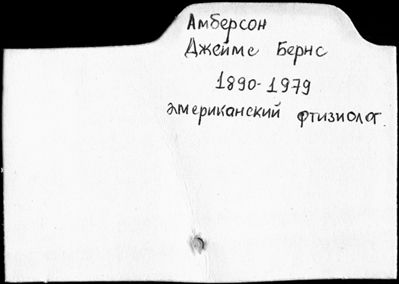 Амберсон
Джейме Бернс
1890-1979
американский фтизиолог